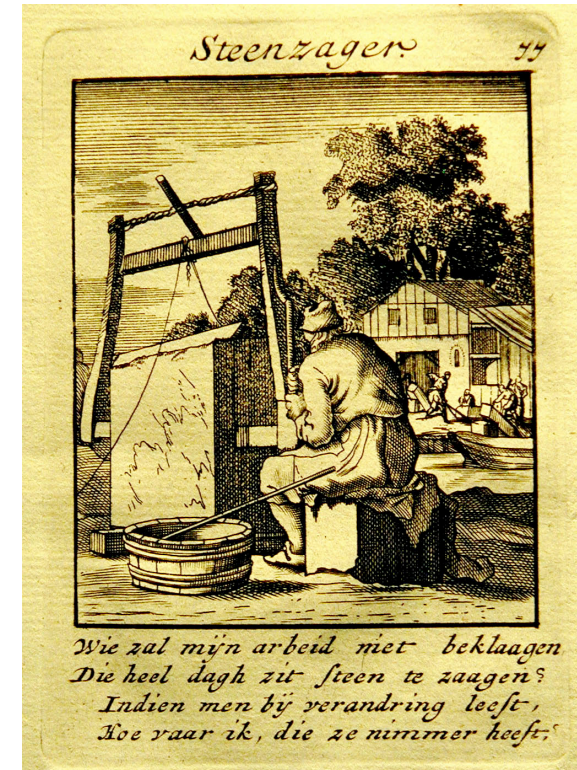 Steenzager. 77
Wie zal mijn arbeid niet beklaagen
Die heel dagh zit steen te zaagen?
Indien men bij verandring leeft,
Hoe vaar ik, die ze nimmer heeft?